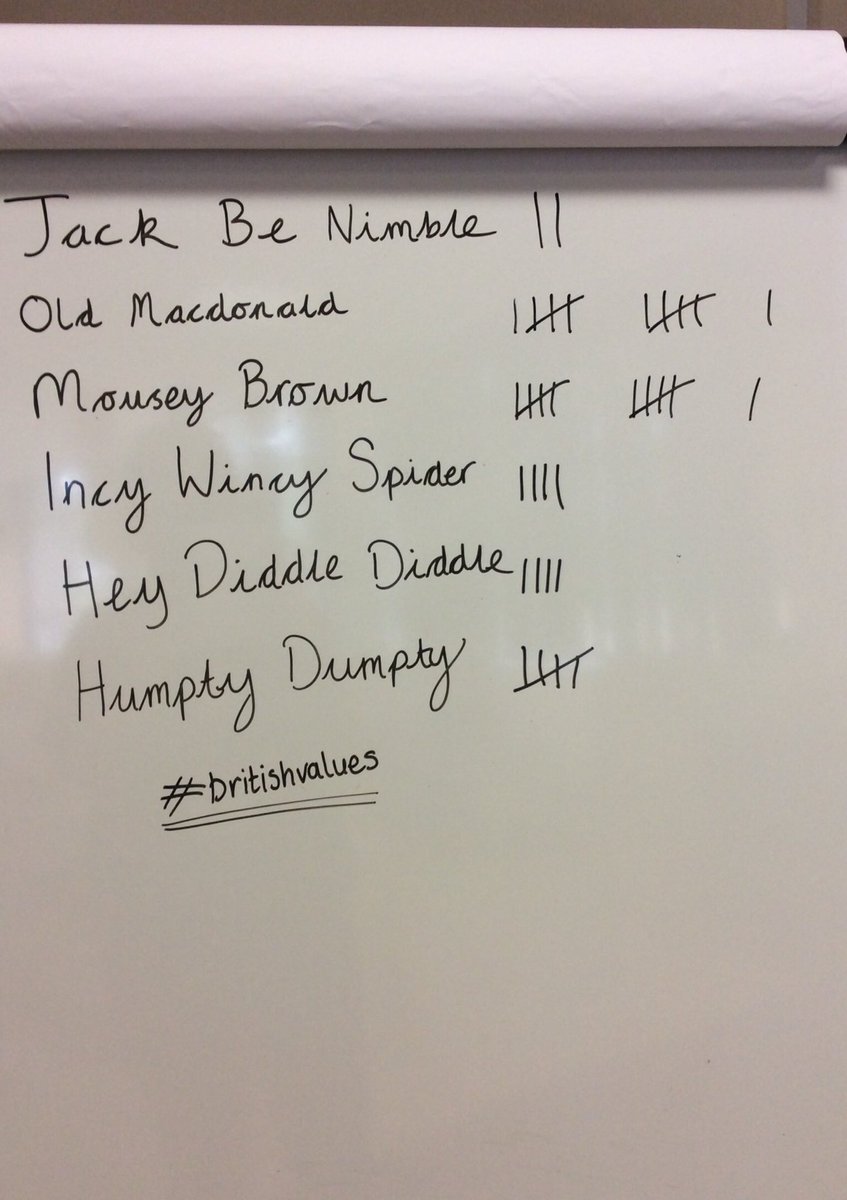 Jack Be Nimble ||
Old Macdonald |||| |||| |
Mousey Brown |||| |||| |
Incy Wincy Spider ||||
Hey Diddle Diddle ||||
Humpty Dumpty ||||
#britishvalues